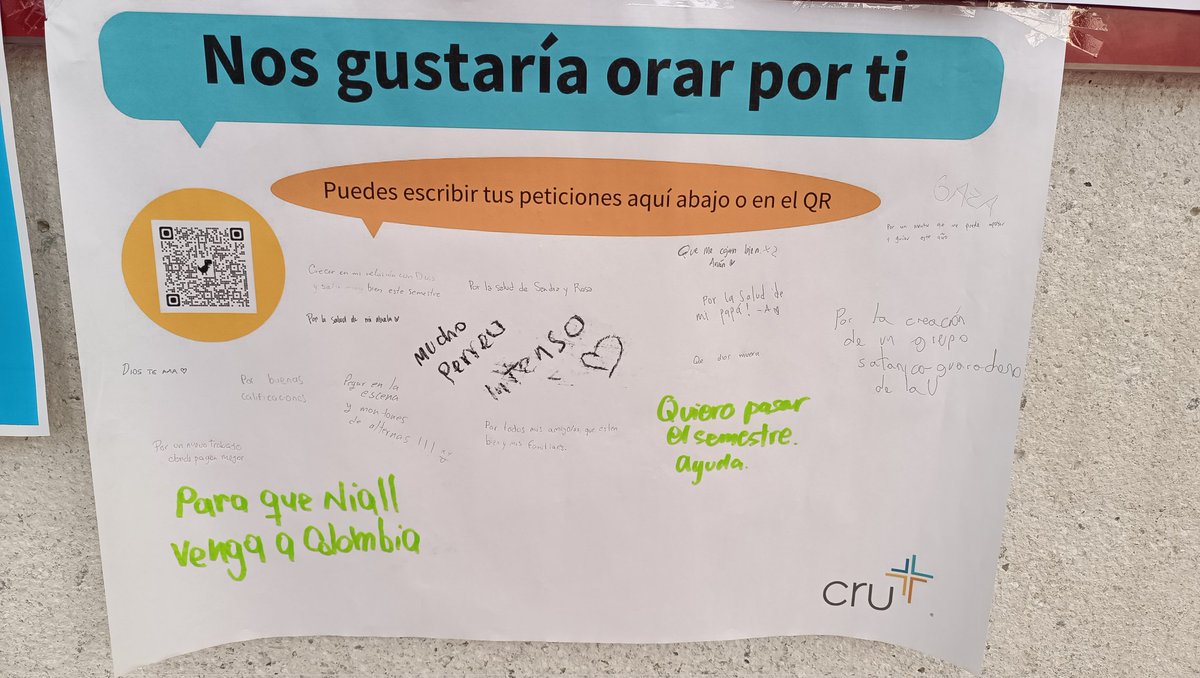 Nos gustaría orar por ti
Puedes escribir tus peticiones aquí abajo o en el QR
GAZA
Por un
Que me cojan bien.
Crecer en mi relación con Dios
y bien este semestre
Por la salud de Sandra y Rosa
Por la salud de
mi papá! -A
Por la salud de mi abuela
Mucho
Perreo
Intenso
Por la creación
de un grupo
satanico-guarachoso
de la U
Que dios muera
DIOS TE AMA
Por buenas
calificaciones
Pegar en la
escena
y montones
de alternas !!!
Quiero pasar
el semestre.
ayuda.
Por todos mis amigos, que esten
bien y mis familiares.
Por un nuevo trabajo
donde paguen mejor
Para que Niall
venga a Colombia
cru